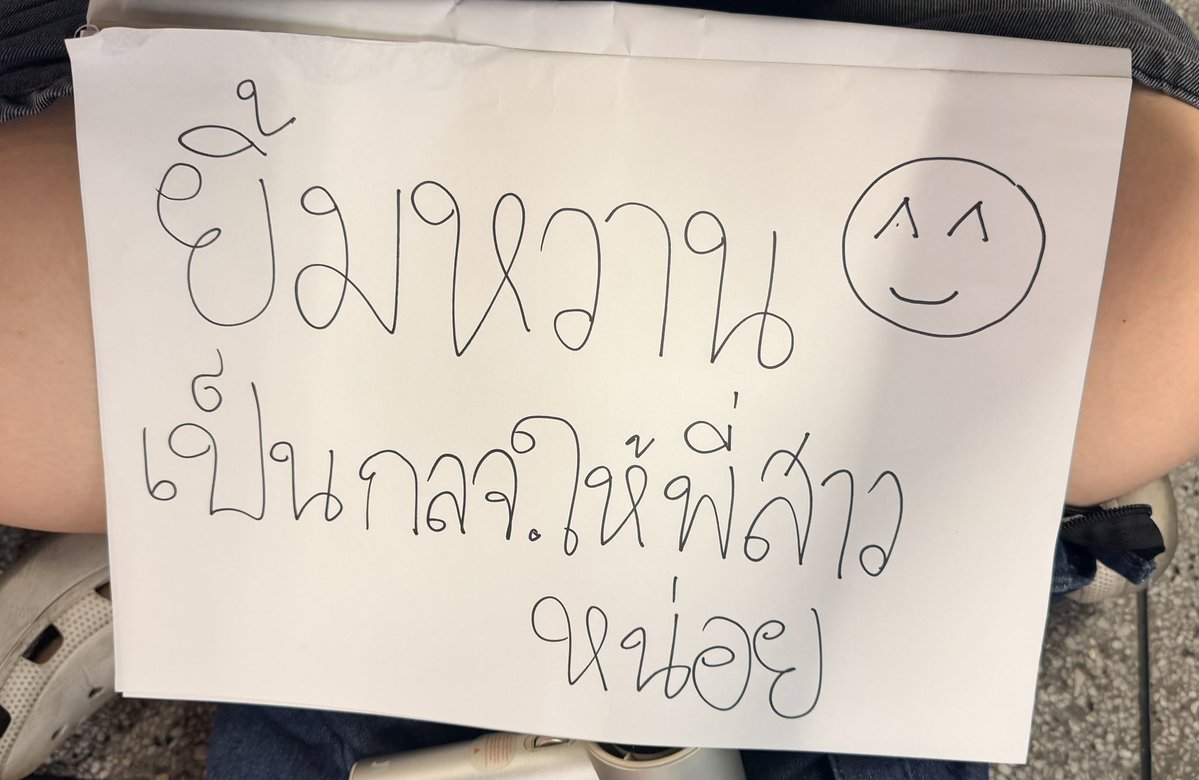 ยิ้มหวาน
เป็นกลจ.ให้พี่สาว
หน่อย